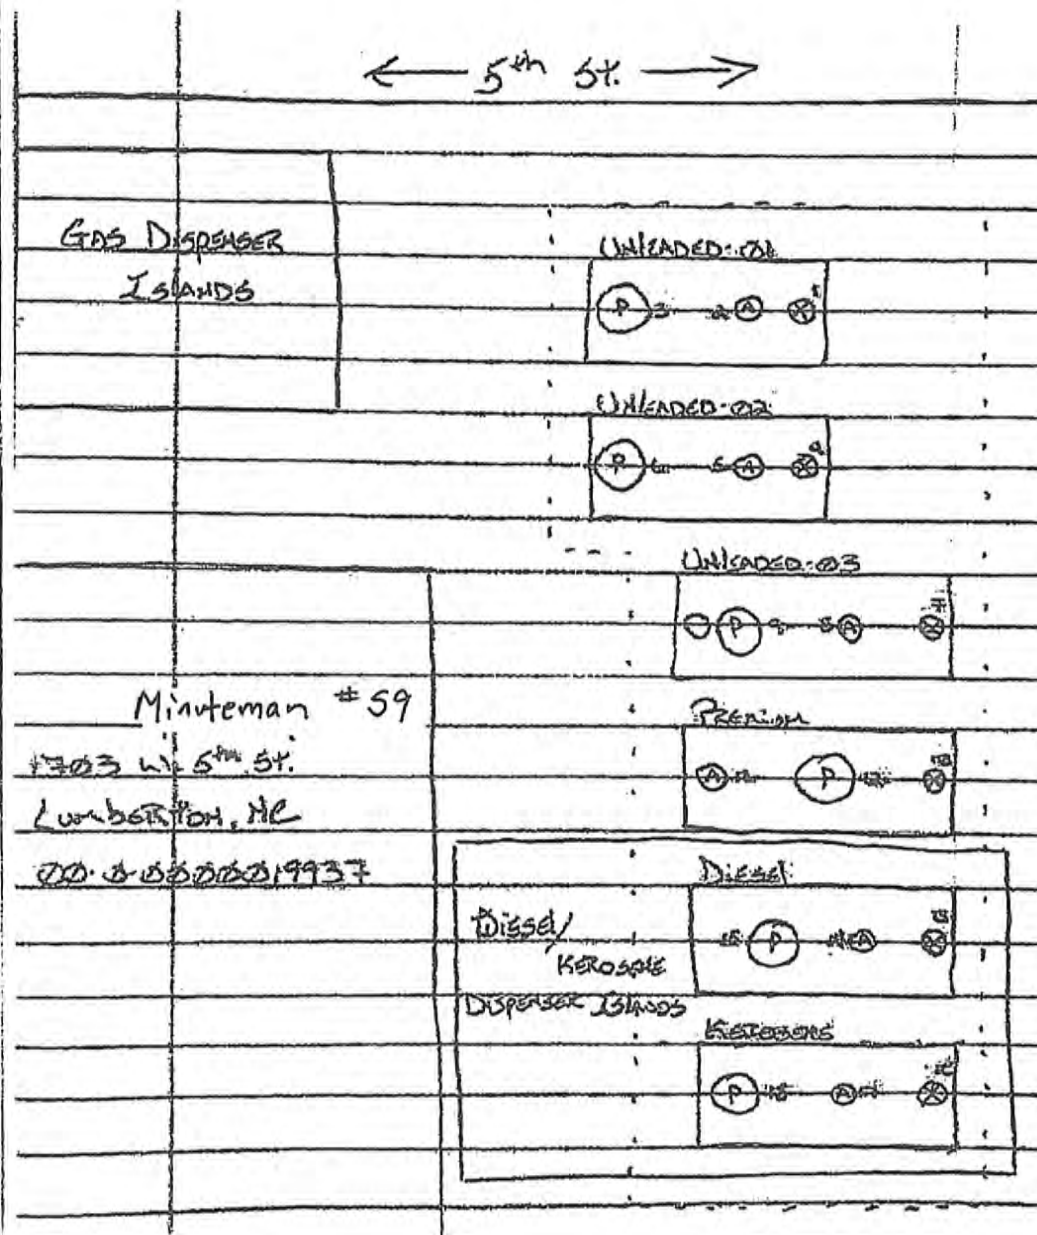 ← 5th St. →
GAS DISPENSER
ISLANDS
UNLEADED-01
P 3 A
UNLEADED-02
P 6 5 A
UNLEADED-03
P 9 8 A
PREMIUM
A P
Minuteman #59
1703 W. 5th St.
Lumberton, NC
00-0-0000019937
Diesel
Diesel/
KEROSENE
DISPENSER ISLANDS
P A
KEROSENE
P A